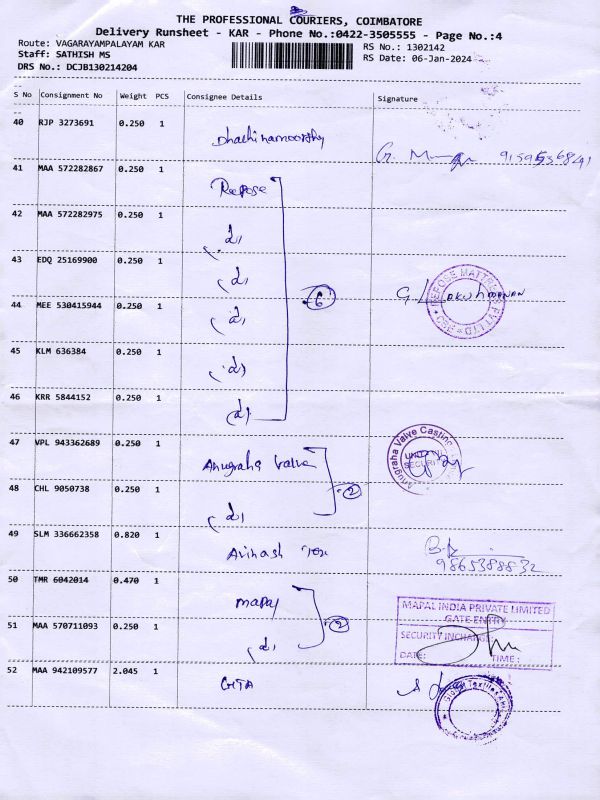 THE PROFESSIONAL COURIERS, COIMBATORE
Delivery Runsheet - KAR - Phone No.:0422-3505555 - Page No.:4
Route: VAGARAYAMPALAYAM KAR
Staff: SATHISH MS
DRS No.: DCJB130214204
RS No.: 1302142
RS Date: 06-Jan-2024
S No Consignment No Weight PCS Consignee Details Signature
40 RJP 3273691 0.250 1
Dhachinamoorthy
41 MAA 572282867 0.250 1
Repose
42 MAA 572282975 0.250 1
d,
43 EDQ 25169900 0.250 1
d,
6
REPOSE MATTRESS PVT LTD CBE
44 MEE 530415944 0.250 1
d,
45 KLM 636384 0.250 1
d)
46 KRR 5844152 0.250 1
d)
47 VPL 943362689 0.250 1
Anugraha Valve
Anugraha Valve Casting
UNIT
SECURITY
2
48 CHL 9050738 0.250 1
d,
49 SLM 336662358 0.820 1
Avinash Tex
9865388832
50 TMR 6042014 0.470 1
mapal
2
MAPAL INDIA PRIVATE LIMITED
GATE ENTRY
SECURITY INCHARGE:
DATE: TIME:
51 MAA 570711093 0.250 1
d,
52 MAA 942109577 2.045 1
GTA